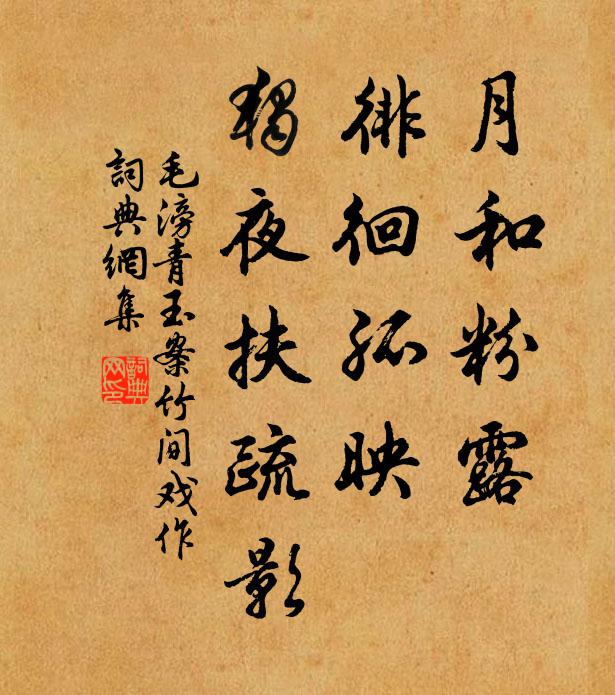 月和粉露
徘徊孤映
獨夜扶疏影
毛滂青玉案竹间戏作
詞典網集
詞典网印